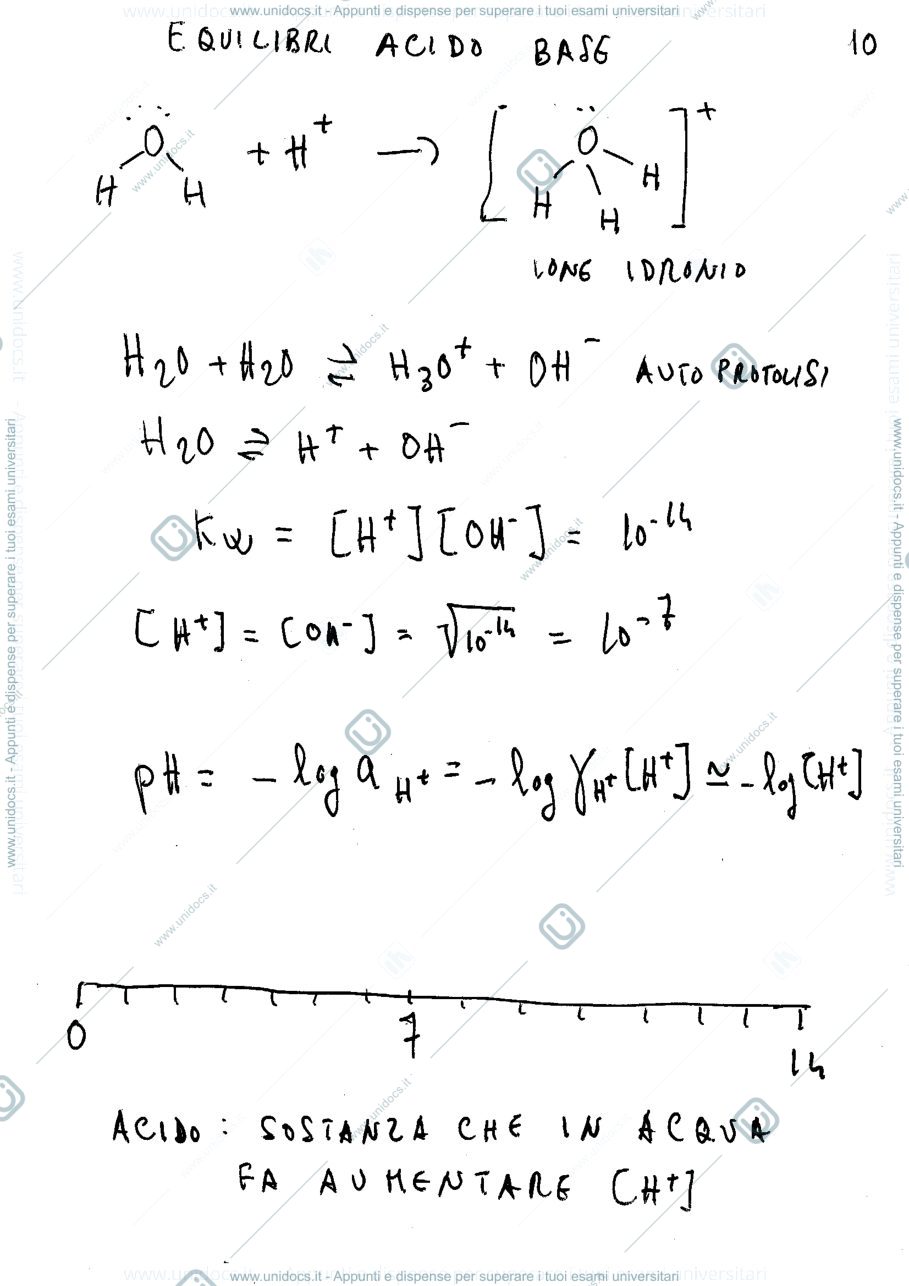 www.unidocs.it - Appunti e dispense per superare i tuoi esami universitari
EQUILIBRI ACIDO BASE 10
H O H + H⁺ → [H O H H]⁺
IONE IDRONIO
H₂O + H₂O ⇌ H₃O⁺ + OH⁻ AUTO PROTOLISI
H₂O ⇌ H⁺ + OH⁻
Kw = [H⁺][OH⁻] = 10⁻¹⁴
[H⁺] = [OH⁻] = √10⁻¹⁴ = 10⁻⁷
pH = - log a H⁺ = - log γH⁺ [H⁺] ≃ - log [H⁺]
0 7 14
ACIDO : SOSTANZA CHE IN ACQUA
FA AUMENTARE [H⁺]
www.unidocs.it - Appunti e dispense per superare i tuoi esami universitari
www.unidocs.it - Appunti e dispense per superare i tuoi esami universitari
www.unidocs.it - Appunti e dispense per superare i tuoi esami universitari